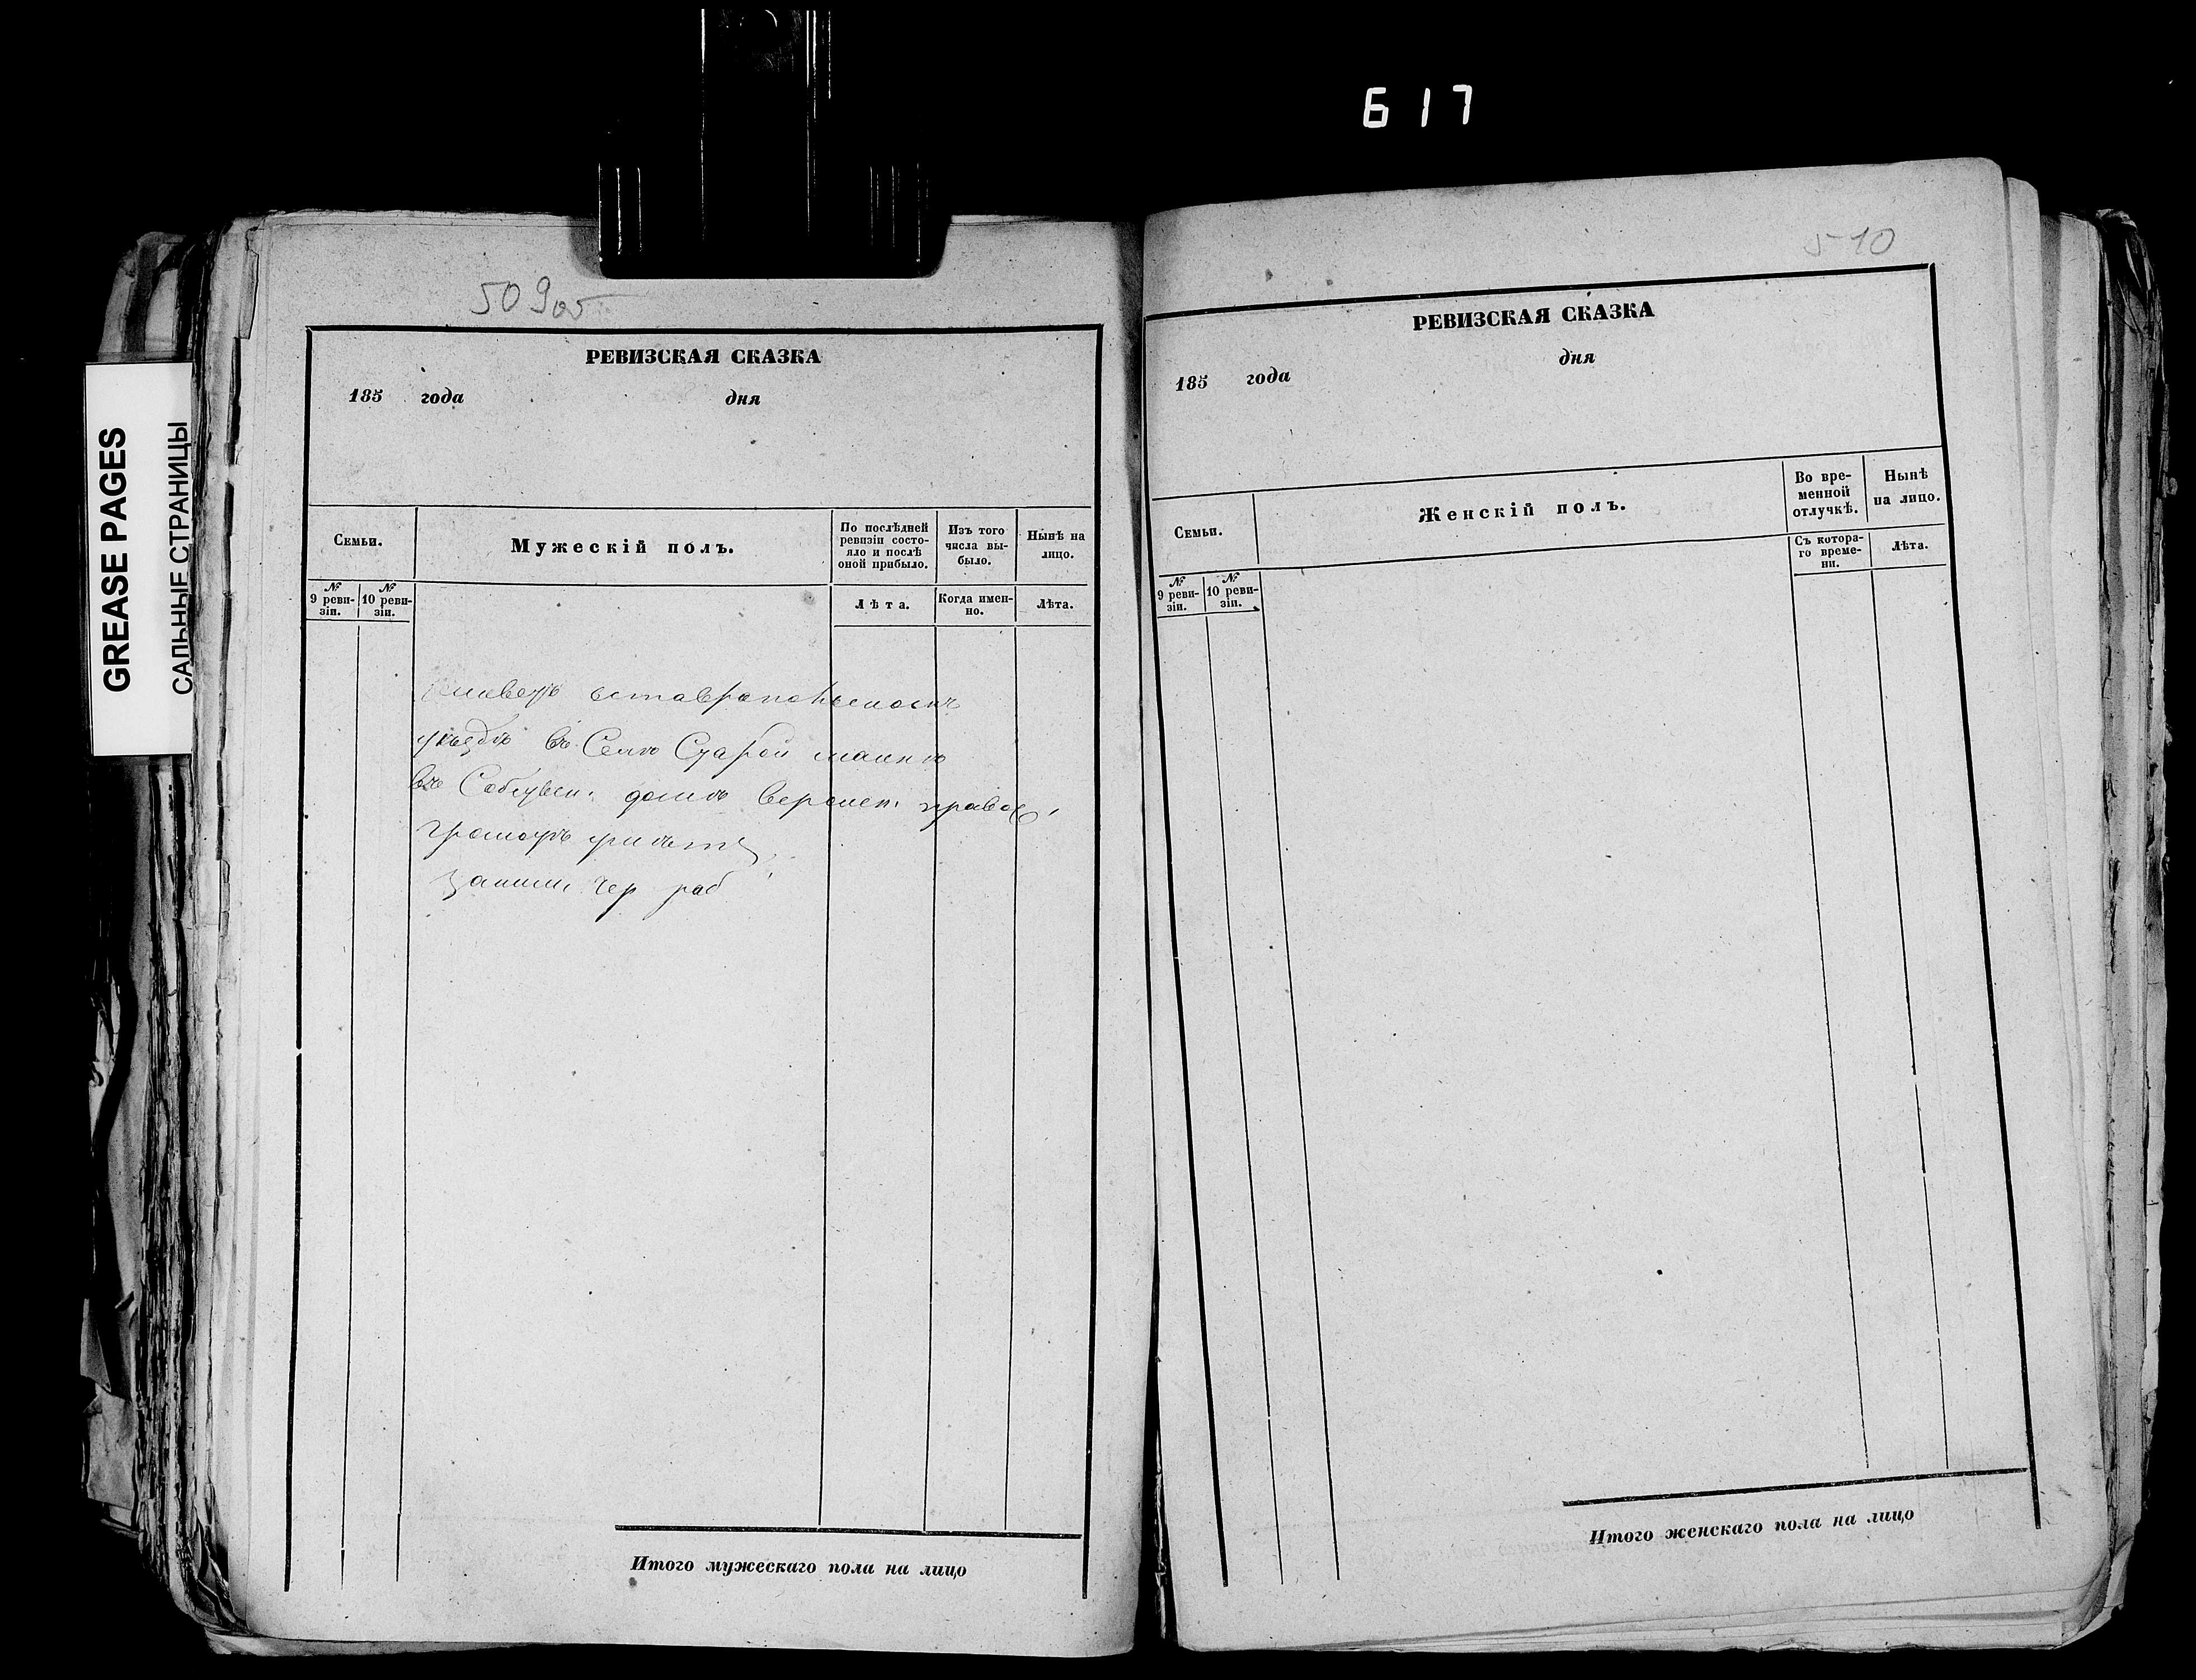 617
GREASE PAGES
САЛЬНЫЕ СТРАНИЦЫ
509об
РЕВИЗСКАЯ СКАЗКА
185 года дня
Семьи.
Мужескій полъ.
По послѣдней ревизіи состояло и послѣ оной прибыло.
Изъ того числа выбыло.
Нынѣ на лицо.
№ 9 ревизіи.
№ 10 ревизіи.
Лѣта.
Когда именно.
Лѣта.
живетъ в ставропольскомъ
уѣздѣ въ Селѣ Старой маинѣ
въ Собствен: домѣ вероисп. правос
грамотѣ умѣетъ
заним. чер раб
Итого мужескаго пола на лицо
510
РЕВИЗСКАЯ СКАЗКА
185 года дня
Семьи.
Женскій полъ.
Во временной отлучкѣ.
Нынѣ на лицо.
№ 9 ревизіи.
№ 10 ревизіи.
Съ котораго времени.
Лѣта.
Итого женскаго пола на лицо